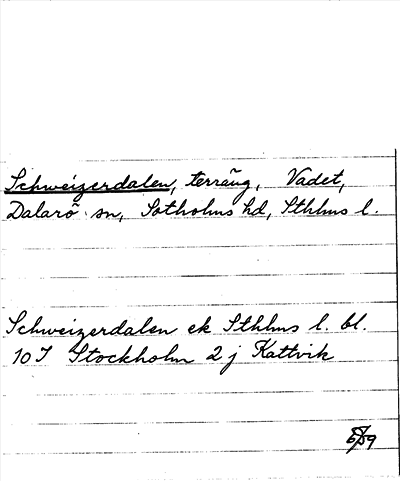 Schweizerdalen, terräng, Vadet,
Dalarö sn, Sotholms hd, Sthlms l.
Schweizerdalen ek Sthlms l. bl.
10I Stockholm 2 j Kattvik